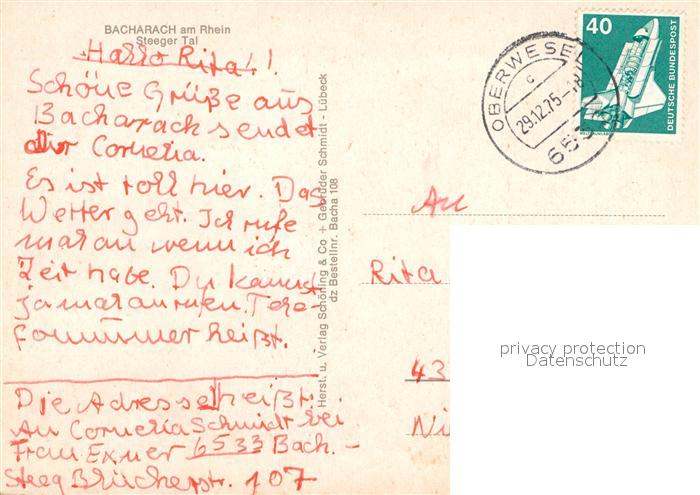 BACHARACH am Rhein
Steeger Tal
Hallo Rita!!
Schöne Grüße aus
Bacharach sendet
dir Cornelia.
Es ist toll hier. Das
Wetter geht. Ich rufe
mal an wenn ich
Zeit habe. Du kannst
ja mal anrufen. Tele-
fonnummer heißt.
Die Adresse heißt:
An Cornelia Schmidt bei
Frau Exner 6533 Bach. -
Steeg Blücherstr. 107
Herst. u. Verlag Schöning & Co + Gebrüder Schmidt - Lübeck
dz Bestellnr. Bacha 108
OBERWESEL
c
29.12.75
653
40
DEUTSCHE BUNDESPOST
An
Rita
43
Ni
privacy protection
Datenschutz